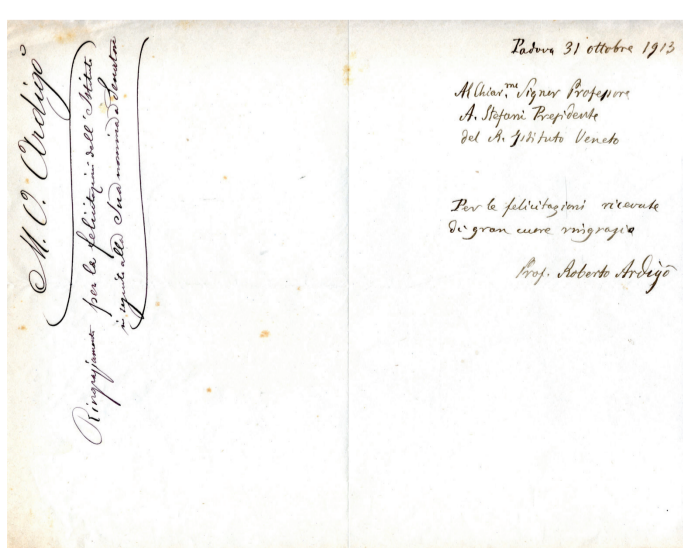 M. O. Ardigò
Ringraziamento per le felicitazioni dell'Istituto
in seguito alla Sua nomina a Senatore
Padova 31 ottobre 1913
Al Chiar.mo Signor Professore
A. Stefani Presidente
del R. Istituto Veneto
Per le felicitazioni ricevute
di gran cuore ringrazio
Prof. Roberto Ardigò